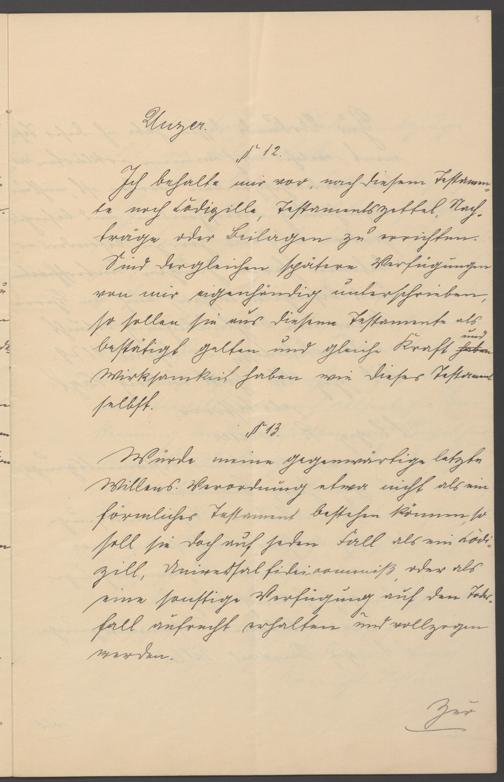 Unger.
§ 12.
Ich behalte mir vor, nach diesem Testamen-
te noch Codizille, Testamentszettel, Nach-
träge oder Beilagen zu errichten.
Sind dergleichen spätere Verfügungen
von mir eigenhändig unterschrieben,
so sollen sie aus diesem Testamente als
bestätigt gelten und gleiche Kraft und
Wirksamkeit haben wie dieses Testament
selbst.
§ 13.
Würde meine gegenwärtige letzte
Willens-Verordnung etwa nicht als ein
förmliches Testament bestehen können, so
soll sie doch auf jeden Fall als ein Codi-
zill, Universalfideicommiß, oder als
eine sonstige Verfügung auf den Todes-
fall aufrecht erhalten und vollzogen
werden.
Zur